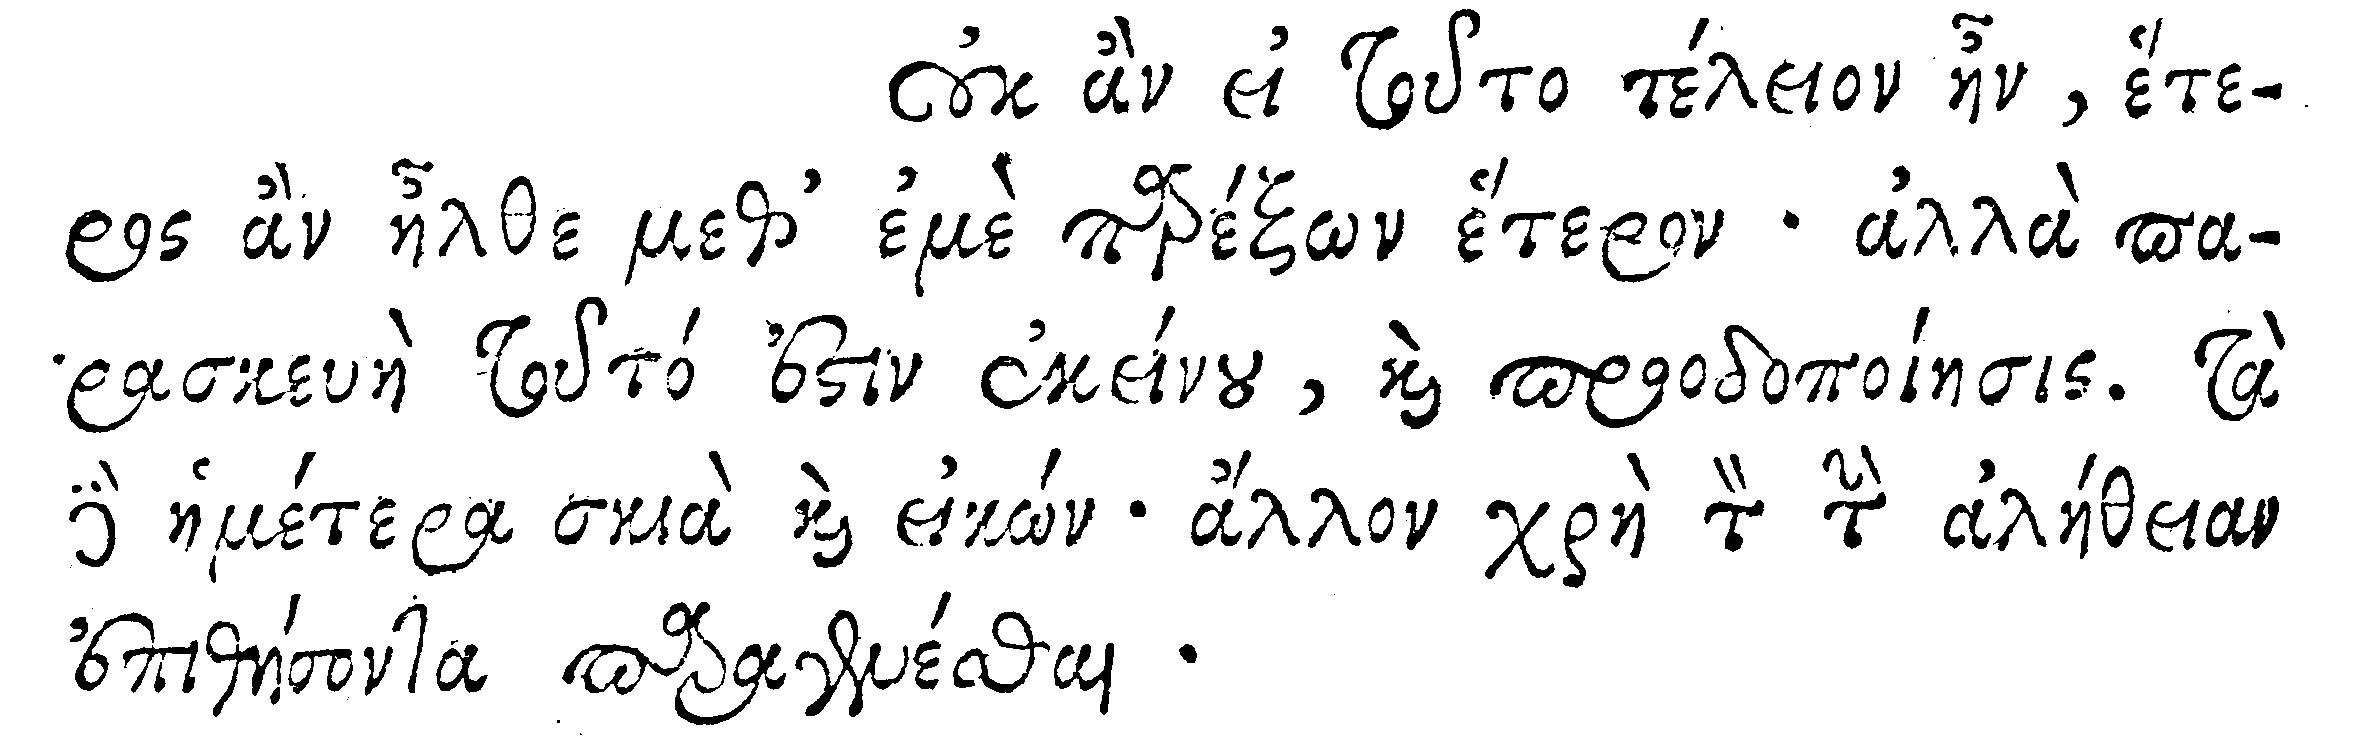 οὐκ ἂν εἰ τοῦτο τέλειον ἦν, ἕτε-
ρος ἂν ἦλθε μεθ’ ἐμὲ παρέξων ἕτερον· ἀλλὰ πα-
ρασκευὴ τοῦτό ἐστιν ἐκείνου, καὶ προοδοποίησις. τὰ
γὰρ ἡμέτερα σκιὰ καὶ εἰκών· ἄλλον χρὴ τὸν τὴν ἀλήθειαν
ἐπιθήσοντα παραγενέσθαι.